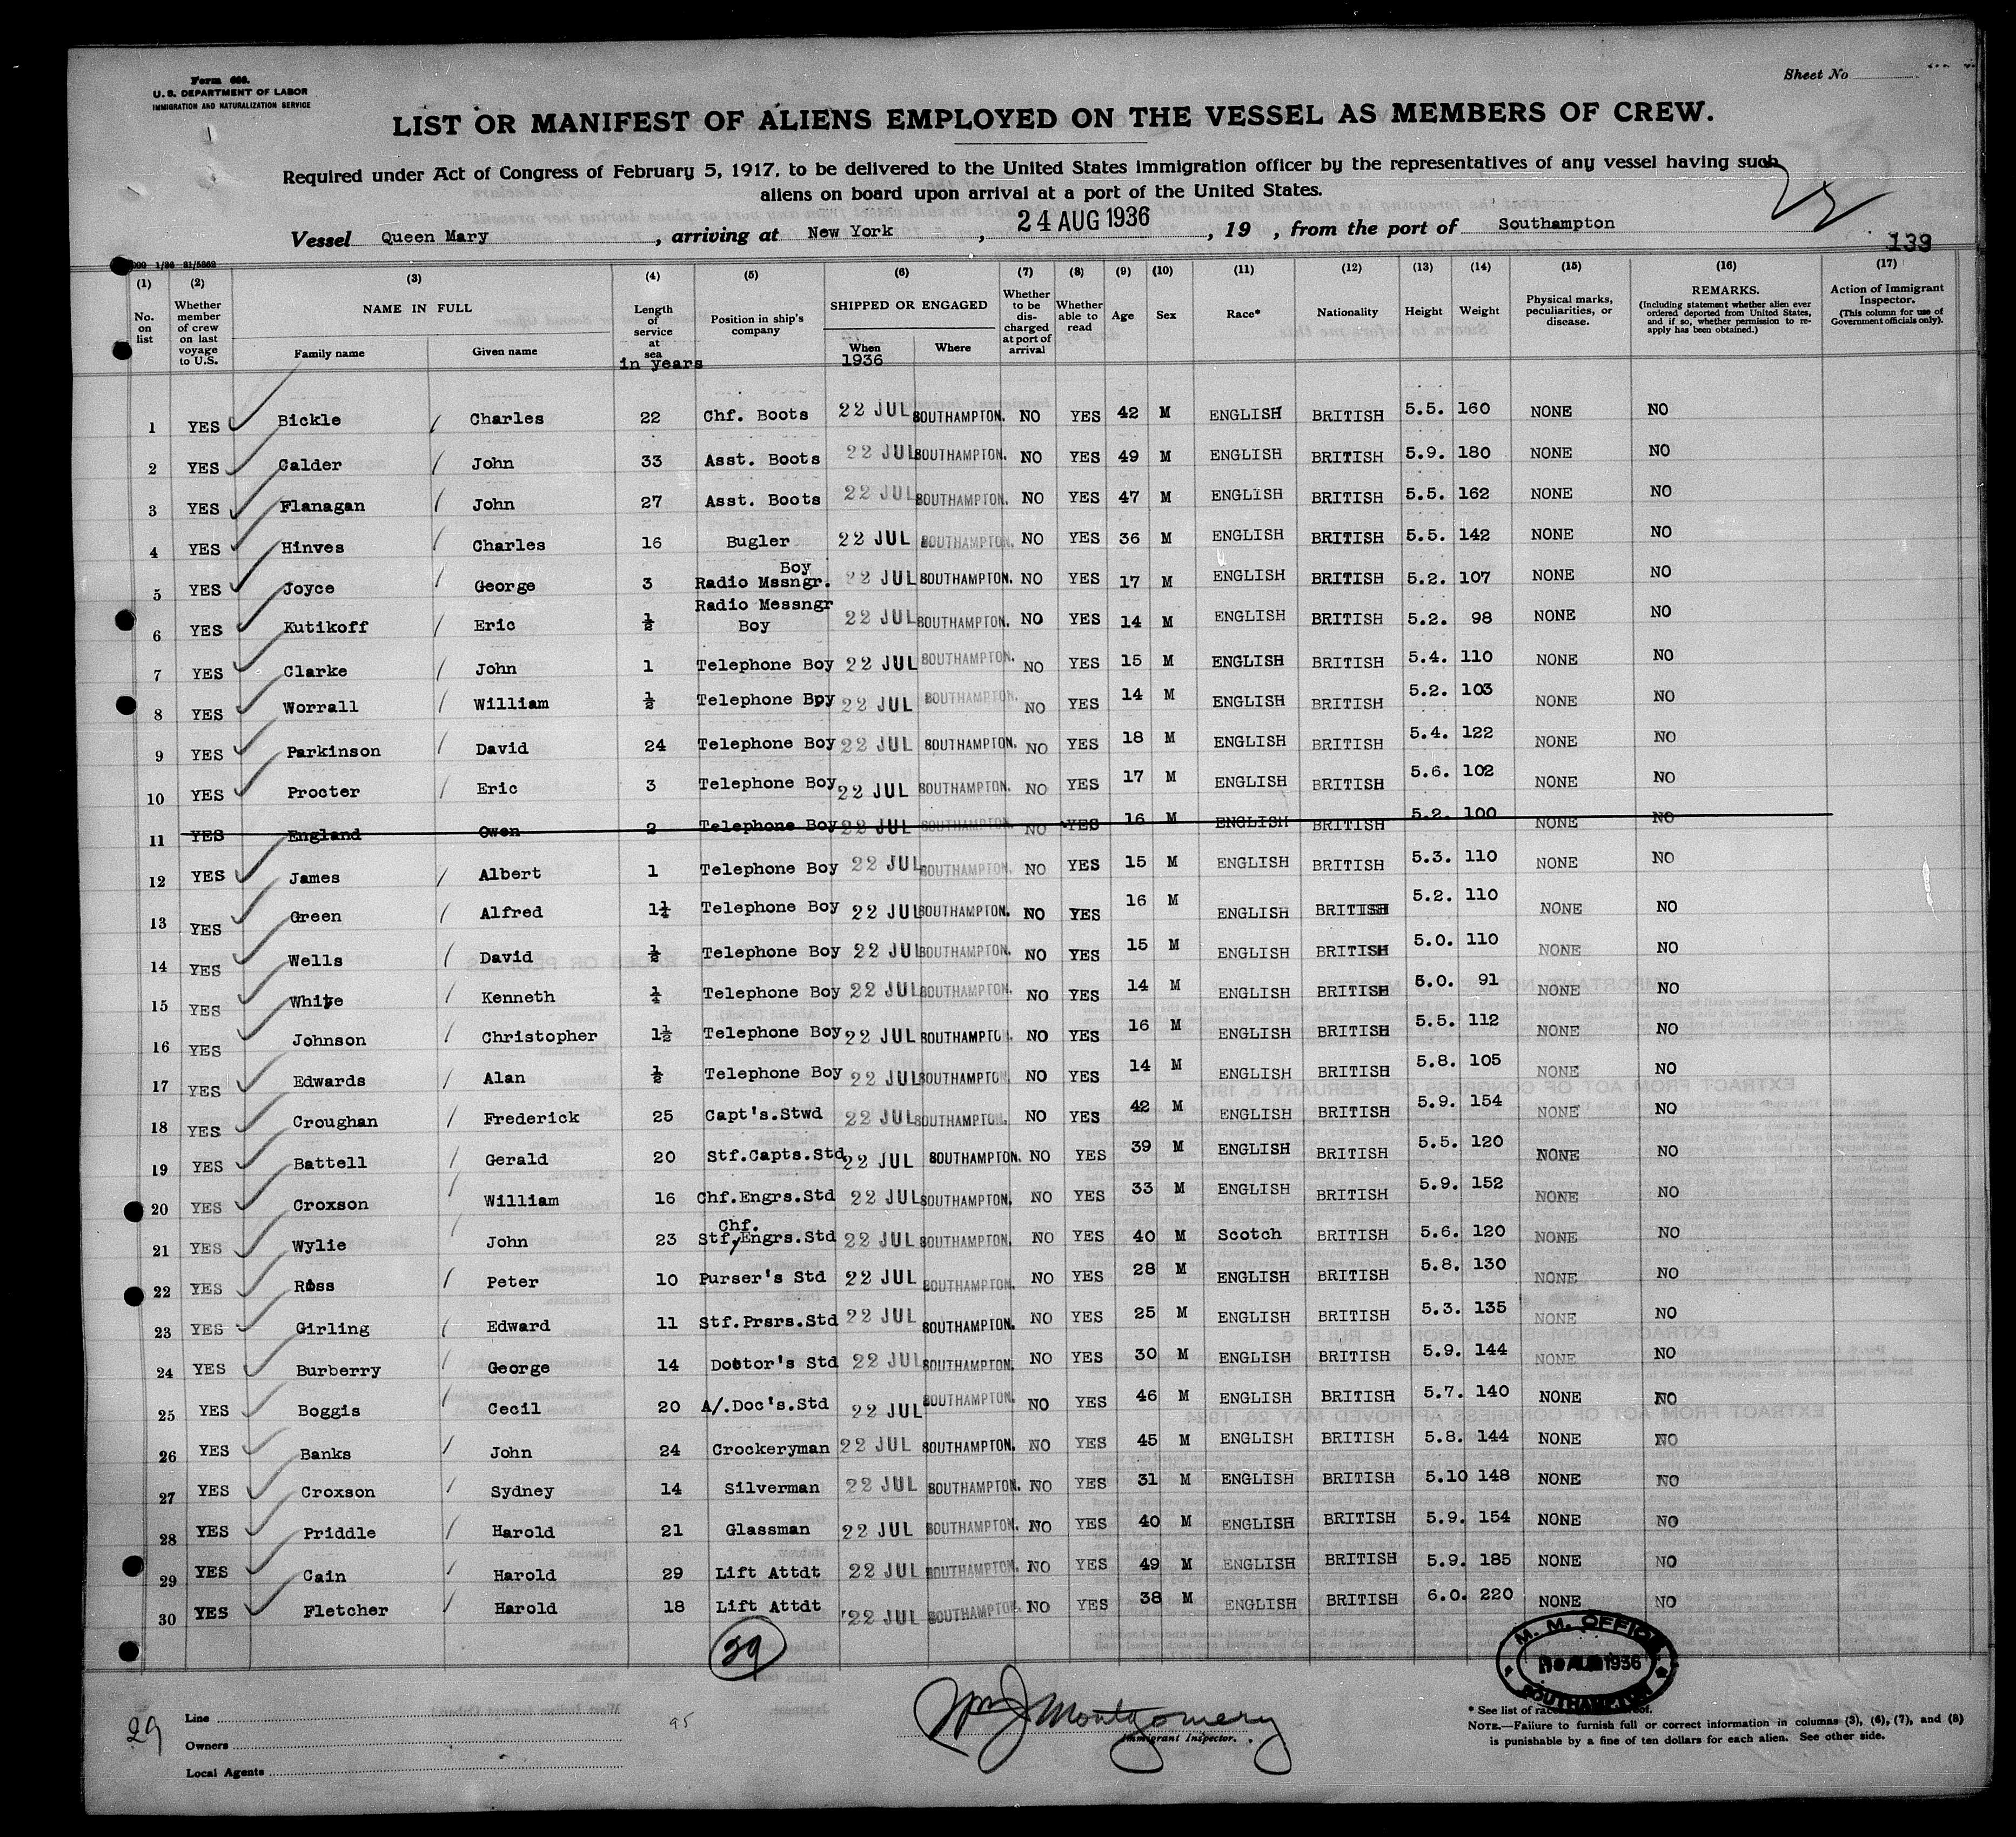 Form 680.
U. S. DEPARTMENT OF LABOR
IMMIGRATION AND NATURALIZATION SERVICE
Sheet No
LIST OR MANIFEST OF ALIENS EMPLOYED ON THE VESSEL AS MEMBERS OF CREW.
Required under Act of Congress of February 5, 1917, to be delivered to the United States immigration officer by the representatives of any vessel having such
aliens on board upon arrival at a port of the United States.
Vessel Queen Mary, arriving at New York, 24 AUG 1936, 19 , from the port of Southampton
139
(1) (2) (3) (4) (5) (6) (7) (8) (9) (10) (11) (12) (13) (14) (15) (16) (17)
No. on list
Whether member of crew on last voyage to U.S.
NAME IN FULL
Family name Given name
Length of service at sea
in years
Position in ship's company
SHIPPED OR ENGAGED
When Where
1936
Whether to be discharged at port of arrival
Whether able to read
Age
Sex
Race*
Nationality
Height
Weight
Physical marks, peculiarities, or disease.
REMARKS.
(Including statement whether alien ever ordered deported from United States, and if so, whether permission to reapply has been obtained.)
Action of Immigrant Inspector.
(This column for use of Government officials only).
1 YES Bickle Charles 22 Chf. Boots 22 JUL SOUTHAMPTON. NO YES 42 M ENGLISH BRITISH 5.5. 160 NONE NO
2 YES Calder John 33 Asst. Boots 22 JUL SOUTHAMPTON. NO YES 49 M ENGLISH BRITISH 5.9. 180 NONE NO
3 YES Flanagan John 27 Asst. Boots 22 JUL SOUTHAMPTON. NO YES 47 M ENGLISH BRITISH 5.5. 162 NONE NO
4 YES Hinves Charles 16 Bugler 22 JUL SOUTHAMPTON. NO YES 36 M ENGLISH BRITISH 5.5. 142 NONE NO
5 YES Joyce George 3 Radio Mssngr. Boy 22 JUL SOUTHAMPTON. NO YES 17 M ENGLISH BRITISH 5.2. 107 NONE NO
6 YES Kutikoff Eric ½ Radio Messngr Boy 22 JUL SOUTHAMPTON. NO YES 14 M ENGLISH BRITISH 5.2. 98 NONE NO
7 YES Clarke John 1 Telephone Boy 22 JUL SOUTHAMPTON. NO YES 15 M ENGLISH BRITISH 5.4. 110 NONE NO
8 YES Worrall William ½ Telephone Boy 22 JUL SOUTHAMPTON. NO YES 14 M ENGLISH BRITISH 5.2. 103 NONE NO
9 YES Parkinson David 24 Telephone Boy 22 JUL SOUTHAMPTON. NO YES 18 M ENGLISH BRITISH 5.4. 122 NONE NO
10 YES Procter Eric 3 Telephone Boy 22 JUL SOUTHAMPTON. NO YES 17 M ENGLISH BRITISH 5.6. 102 NONE NO
11 YES England Owen 2 Telephone Boy 22 JUL SOUTHAMPTON. NO YES 16 M ENGLISH BRITISH 5.2. 100 NONE NO
12 YES James Albert 1 Telephone Boy 22 JUL SOUTHAMPTON. NO YES 15 M ENGLISH BRITISH 5.3. 110 NONE NO
13 YES Green Alfred 1¼ Telephone Boy 22 JUL SOUTHAMPTON. NO YES 16 M ENGLISH BRITISH 5.2. 110 NONE NO
14 YES Wells David ½ Telephone Boy 22 JUL SOUTHAMPTON. NO YES 15 M ENGLISH BRITISH 5.0. 110 NONE NO
15 YES Whyte Kenneth ¼ Telephone Boy 22 JUL SOUTHAMPTON. NO YES 14 M ENGLISH BRITISH 5.0. 91 NONE NO
16 YES Johnson Christopher 1½ Telephone Boy 22 JUL SOUTHAMPTON. NO YES 16 M ENGLISH BRITISH 5.5. 112 NONE NO
17 YES Edwards Alan ½ Telephone Boy 22 JUL SOUTHAMPTON NO YES 14 M ENGLISH BRITISH 5.8. 105 NONE NO
18 YES Croughan Frederick 25 Capt's.Stwd 22 JUL SOUTHAMPTON. NO YES 42 M ENGLISH BRITISH 5.9. 154 NONE NO
19 YES Battell Gerald 20 Stf.Capts.Std 22 JUL SOUTHAMPTON. NO YES 39 M ENGLISH BRITISH 5.5. 120 NONE NO
20 YES Croxson William 16 Chf.Engrs.Std 22 JUL SOUTHAMPTON. NO YES 33 M ENGLISH BRITISH 5.9. 152 NONE NO
21 YES Wylie John 23 Stf. Chf. Engrs.Std 22 JUL SOUTHAMPTON. NO YES 40 M Scotch BRITISH 5.6. 120 NONE NO
22 YES Ross Peter 10 Purser's Std 22 JUL SOUTHAMPTON. NO YES 28 M ENGLISH BRITISH 5.8. 130 NONE NO
23 YES Girling Edward 11 Stf.Prsrs.Std 22 JUL SOUTHAMPTON. NO YES 25 M ENGLISH BRITISH 5.3. 135 NONE NO
24 YES Burberry George 14 Doctor's Std 22 JUL SOUTHAMPTON. NO YES 30 M ENGLISH BRITISH 5.9. 144 NONE NO
25 YES Boggis Cecil 20 A/.Doc's.Std 22 JUL SOUTHAMPTON. NO YES 46 M ENGLISH BRITISH 5.7. 140 NONE NO
26 YES Banks John 24 Crockeryman 22 JUL SOUTHAMPTON. NO YES 45 M ENGLISH BRITISH 5.8. 144 NONE NO
27 YES Croxson Sydney 14 Silverman 22 JUL SOUTHAMPTON. NO YES 31 M ENGLISH BRITISH 5.10 148 NONE NO
28 YES Priddle Harold 21 Glassman 22 JUL SOUTHAMPTON. NO YES 40 M ENGLISH BRITISH 5.9. 154 NONE NO
29 YES Cain Harold 29 Lift Attdt 22 JUL SOUTHAMPTON. NO YES 49 M ENGLISH BRITISH 5.9. 185 NONE NO
30 YES Fletcher Harold 18 Lift Attdt 22 JUL SOUTHAMPTON. NO YES 38 M ENGLISH BRITISH 6.0. 220 NONE NO
M. M. OFFICE
AUG 1936
SOUTHAMPTON
29
Line
Owners
Local Agents
95
Wm J Montgomery
Immigrant Inspector.
* See list of races
NOTE.—Failure to furnish full or correct information in columns (3), (6), (7), and (8)
is punishable by a fine of ten dollars for each alien. See other side.